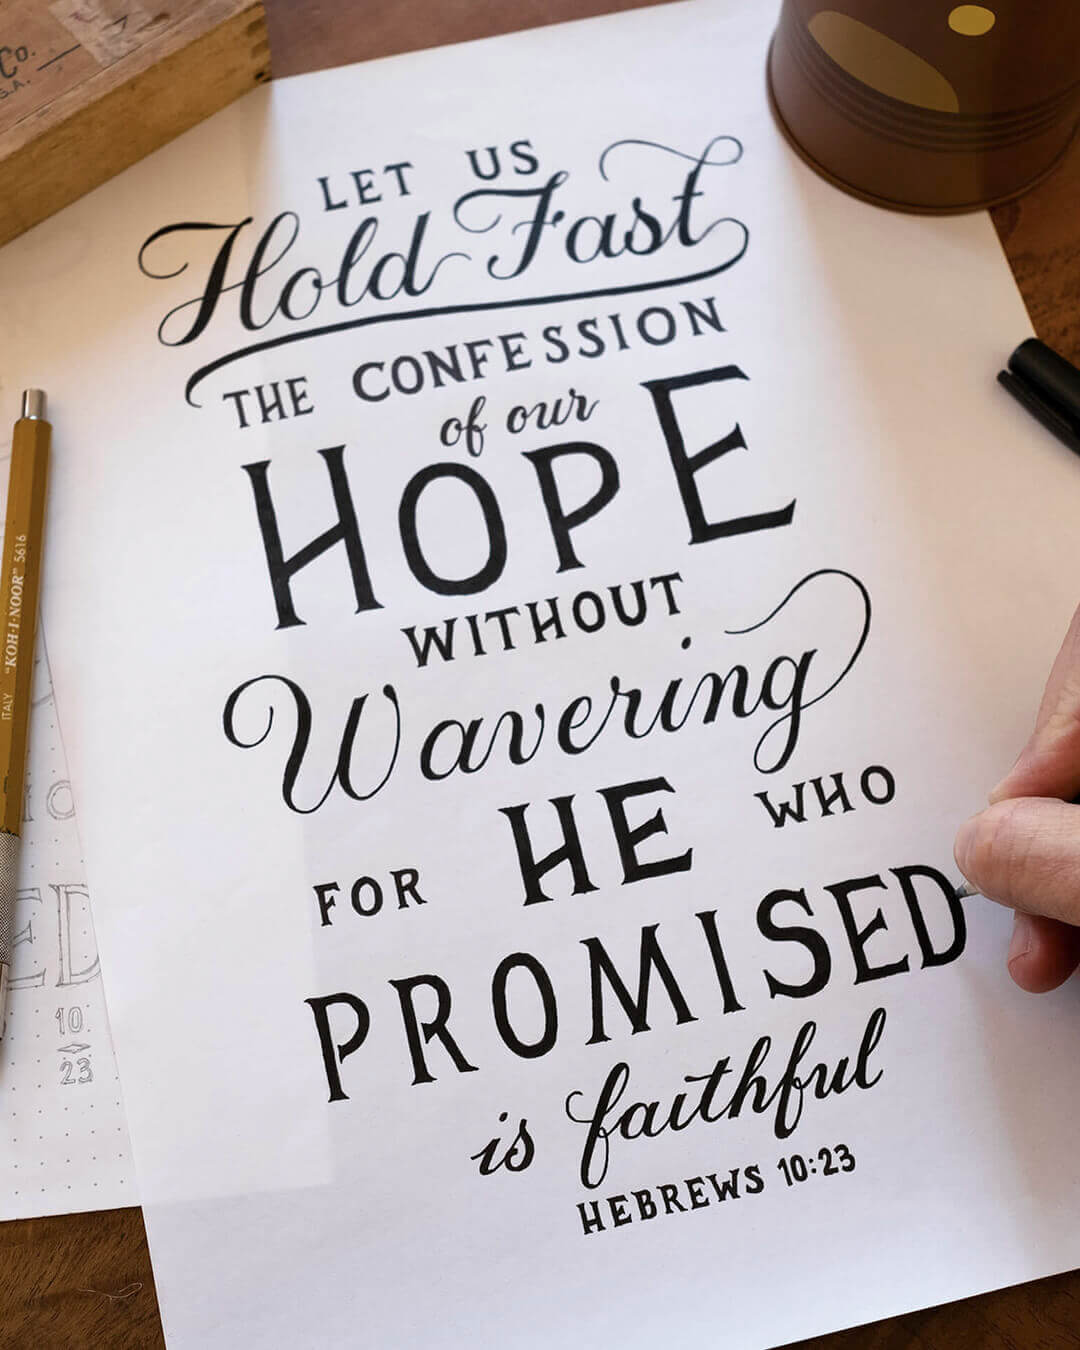 Co.
S.A.
LET US
Hold Fast
THE CONFESSION
of our
HOPE
WITHOUT
Wavering
FOR HE WHO
PROMISED
is faithful
HEBREWS 10:23
ITALY "KOH-I-NOOR" 5616
ED
10
23